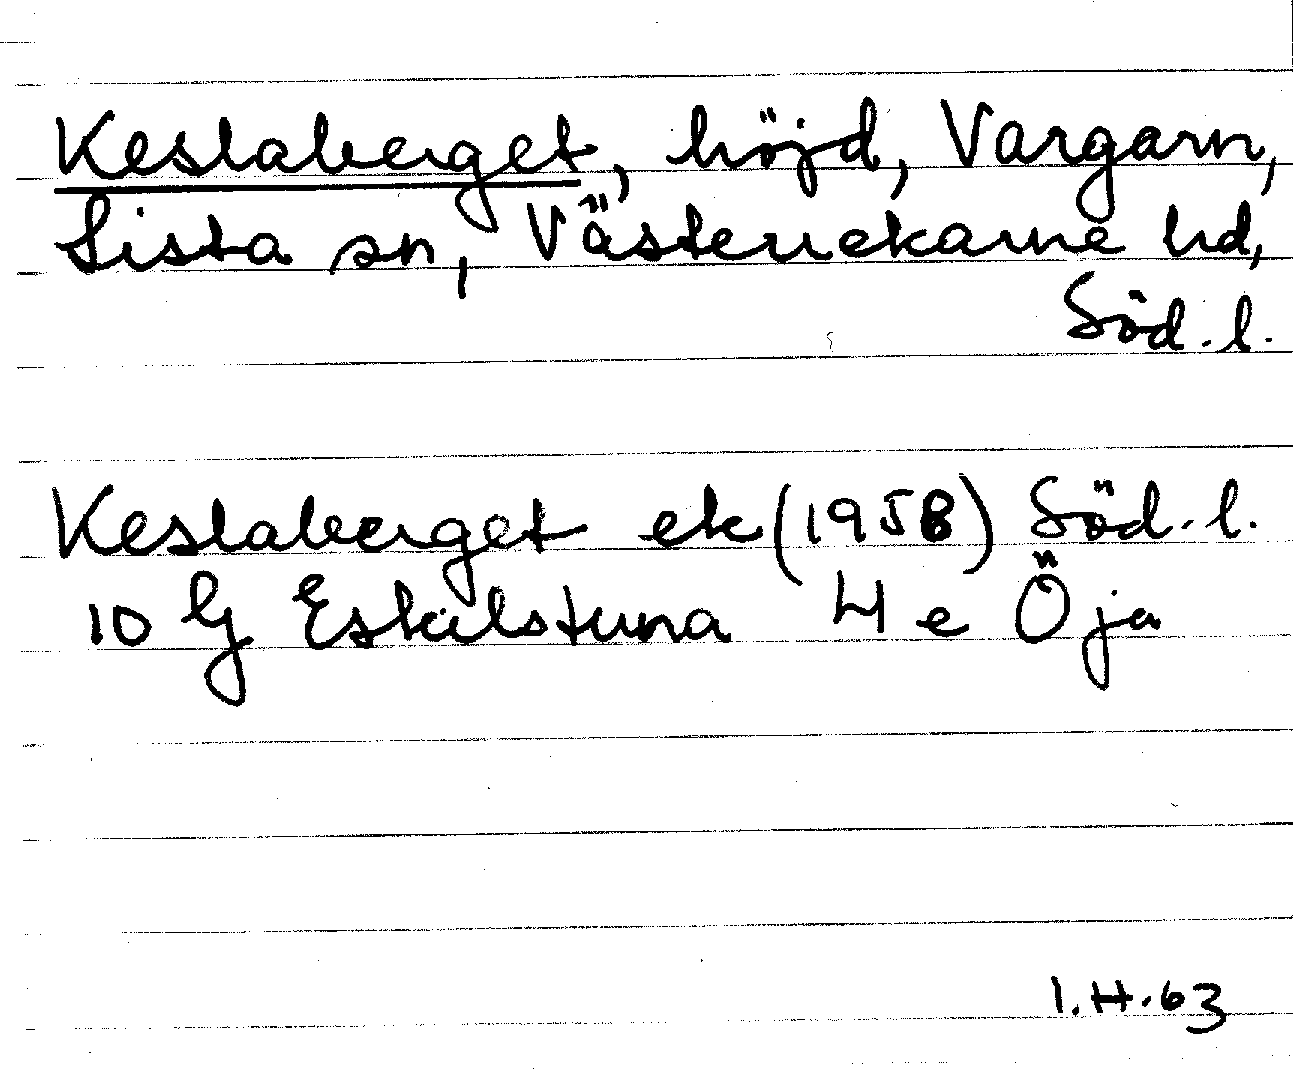 Keslaberget, höjd, Vargarn,
Lista sn, Västerrekarne hd,
Söd. l.
Keslaberget ek (1958) Söd. l.
10 G Eskilstuna 4 e Öja
I.H.63